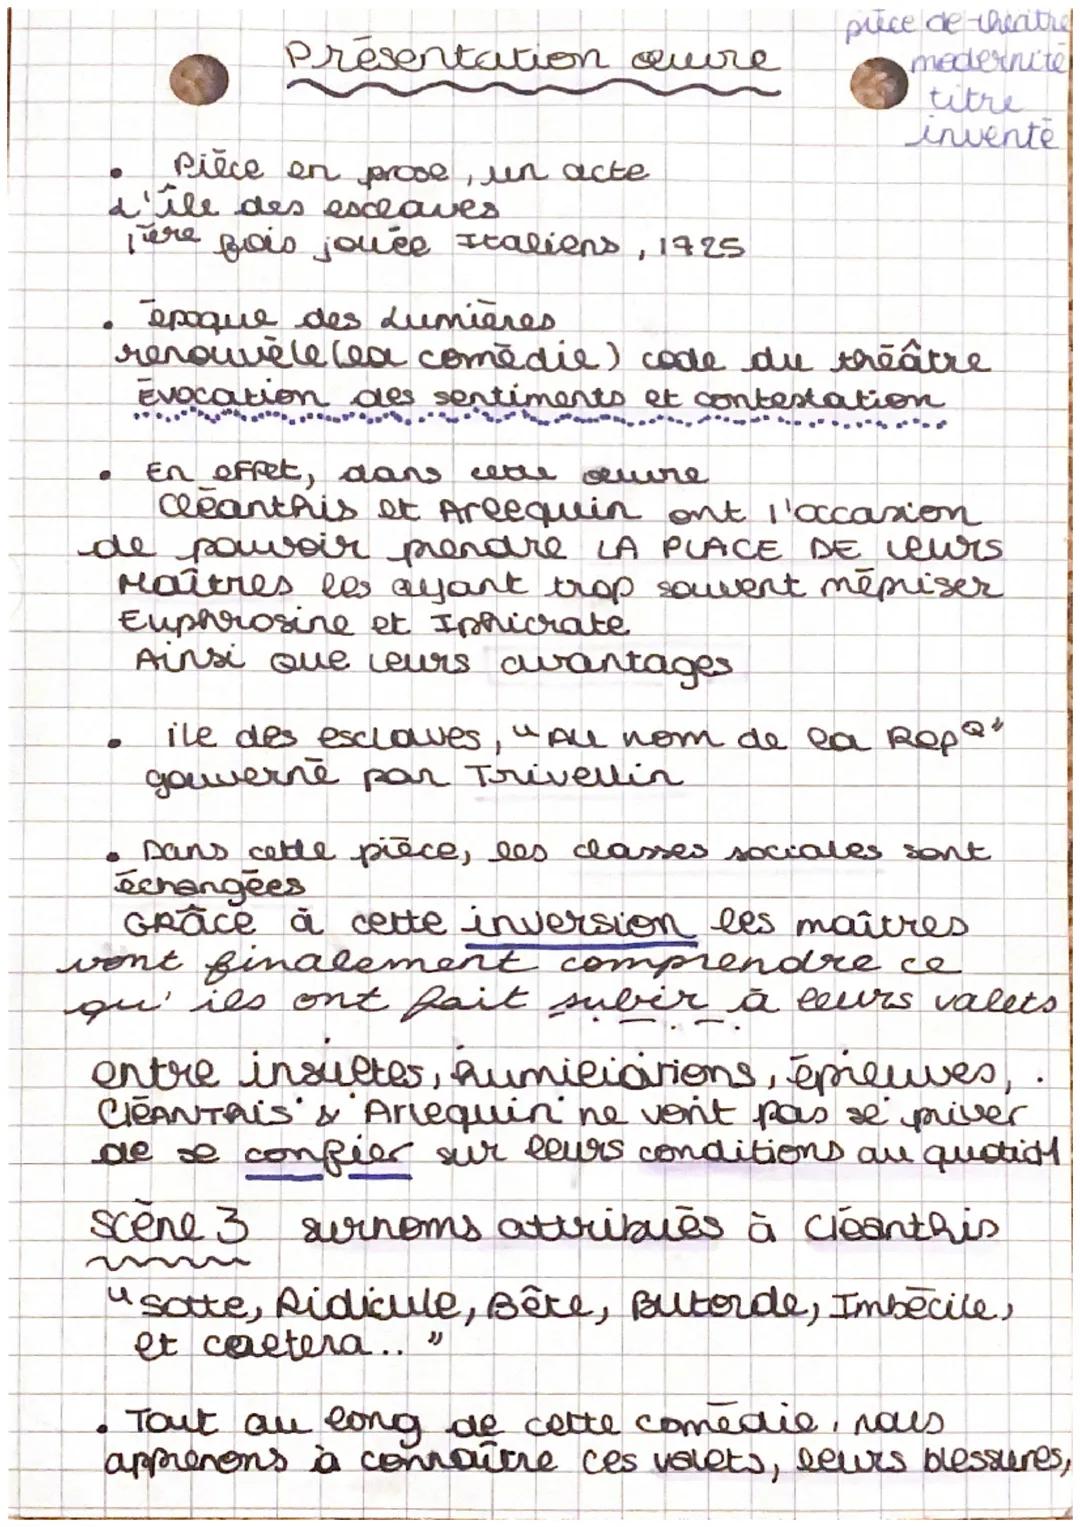 pièce de théâtre
modernité
titre
inventé
Présentation œuvre
• Pièce en prose, un acte
L'île des esclaves
1ère fois jouée Italiens, 1725
• époque des Lumières
renouvèle (la comédie) code du théâtre
Évocation des sentiments et contestation
• En effet, dans cette œuvre
Cléanthis et Arlequin ont l'occasion
de pouvoir prendre LA PLACE DE Leurs
Maîtres les ayant trop souvent mépriser
Euphrosine et Iphicrate
Ainsi que leurs avantages
• île des esclaves, "Au nom de la RepQ"
gouverné par Trivellin
• Dans cette pièce, les classes sociales sont
échangées
GRâce à cette inversion les maîtres
vont finalement comprendre ce
qu'ils ont fait subir à leurs valets
entre insultes, humiliations, épreuves,
CléANThis & Arlequin ne vont pas se priver
de se confier sur leurs conditions au quotidi
scène 3 surnoms attribués à Cléanthis
"Sotte, Ridicule, Bête, Butorde, Imbécile,
et caetera.. "
• Tout au long de cette comédie, nous
apprenons à connaître ces valets, leurs blessures,